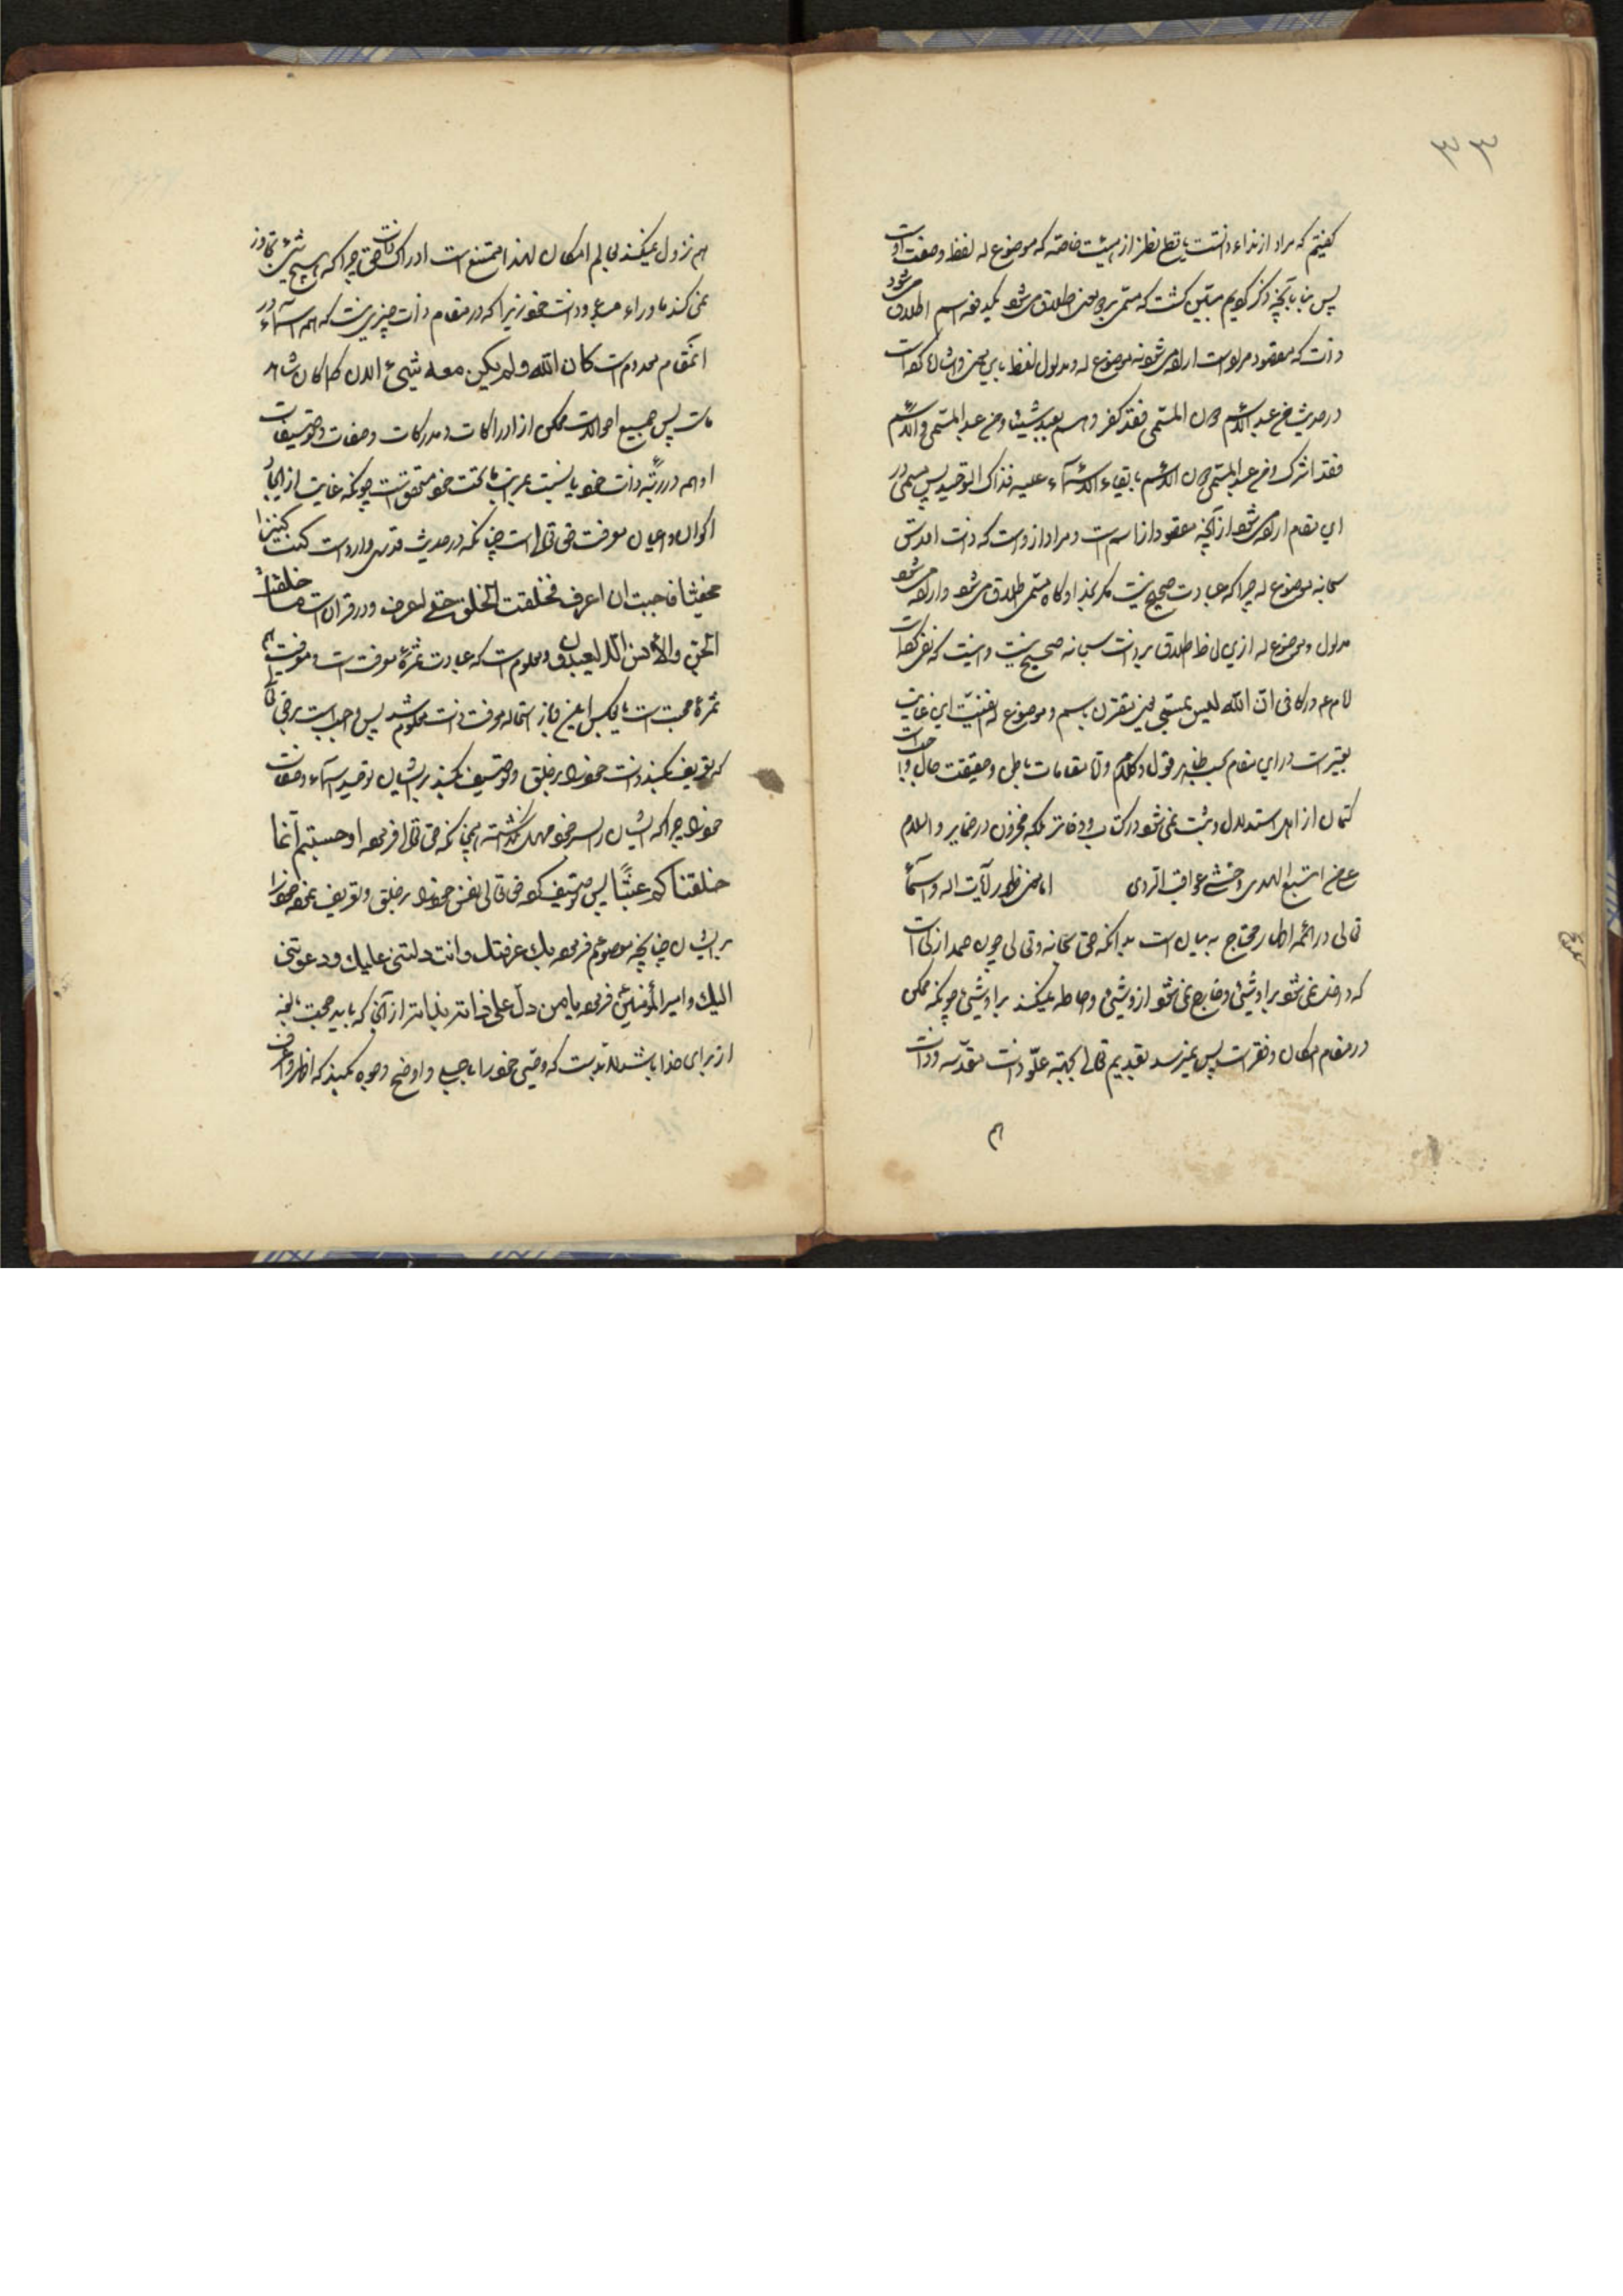 ۳۳
گفتیم که مراد از نداء ذاتست با قطع نظر از هیئت خاصه که موضوع له لفظ و صفت اوست
پس بنا بآنچه ذکر کردیم مبیّن گشت که مسمّی بر دو معنی اطلاق میشود یکدفعه اسم اطلاق میشود
ذات که مقصود مراد است اراده میشود نه موضوع له و مدلول لفظ باین معنی و اشاره کرده است
در حدیث من عبد الاسم دون المسمی فقد کفر و لم یعبد شیئا و من عبد المسمی و الاسم
فقد اشرک و من عبد المسمی دون الاسم بایقاع الاسماء علیه فذاک التوحید پس مسمی در
این مقام اراده میشود از آنچه مقصود از اسم است و مراد از اوست که ذات اقدس
سبحانه موضوع له چرا که عبادت صحیح نیست مگر بخدا و گاه مسمی اطلاق میشود و اراده میشود
مدلول و موضوع له ازین لحاظ اطلاق بر ذات سبحانه صحیح نیست و اینست که نفی کرده است
امام ع در کافی انّ الله لیس بمسمّی یعنی مقترن باسم و موضوع له نیست این غایت
تعبیر است در این مقام بحسب ظاهر قول و کلام و امّا مقامات باطن و حقیقت حال و
کتمان از اهل استدلال و ثبت نمیشود در کتاب و دفاتر بلکه مخزون در ضمایر و السلام
علی من اتبع الهدی و خشی عواقب الردی اما معنی ظهور آیات اله و اسماء
تعالی در ائمه اطهار محتاج به بیان است بدانکه حق سبحانه و تعالی چون صمد از لی است
که داخل نمیشود بر او شیئی و خارج نمیشود از و شیئی و احاطه نمیکند بر او شیئی چونکه ممکن
در مقام امکان و فقر است پس نمیرسد بقدیم تعالی بجهة علوّ ذات مقدسه و ذات
هم
هم نزول نمیکند بعالم امکان لهذا ممتنع است ادراک ذات حق چرا که هیچ شیئی تجاوز
نمی کند ما وراء مبدء و ذات خود زیرا که در مقام ذات چیزی نیست که همه اشیاء در
آنمقام معدوم است کان الله و لم یکن معه شیئ الان کما کان شاهد
ماست پس جمیع احوالات ممکن از ادراکات و مدرکات و صفات و توصیفات
او همه در رتبه ذات خود یا نسبت بمراتب ما تحت خود متحقق است چونکه غایت از ایجاد
اکوان و اعیان معرفت حق تعالی است چنانکه در حدیث قدسی وارد است کنت کنزا
مخفیا فاحببت ان اعرف فخلقت الخلق حتی اعرف و در قرآن است ما خلقت
الجن و الأنس الا لیعبدون و معلوم است که عبادت ثمرهٔ معرفت است و معرفت هم
ثمرهٔ محبت است بالعکس ایضا و باز استحاله معرفت ذات معلوم شد پس واجب است بر حق تعالی
که تعریف کند ذات خود را بر خلق و توصیف کند بر ایشان توحید اسماء و صفات
خود را چرا که ایشان را بسر خود مهمل نگذاشته همچنانکه حق تعالی فرموده افحسبتم انما
خلقناکم عبثا پس توصیف کرده حق تعالی نفس خود را بر خلق و تعریف نموده خود را
بر ایشان چنانچه معصوم فرموده بک عرفتک و انت دللتنی علیک و دعوتنی
الیک و امیر المؤمنین فرموده یا من دلّ علی ذاته بذاته از آنجا که باید حجت بالغه
از برای خدا باشد لابد است که وصیّی خود را باجلی و اوضح وجوه بکند که اظهر و اعرف